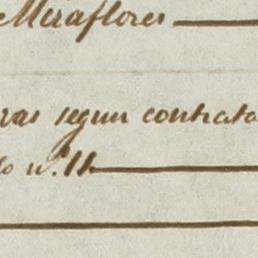 Miraflores
ras segun contrata
lo nº. 11.